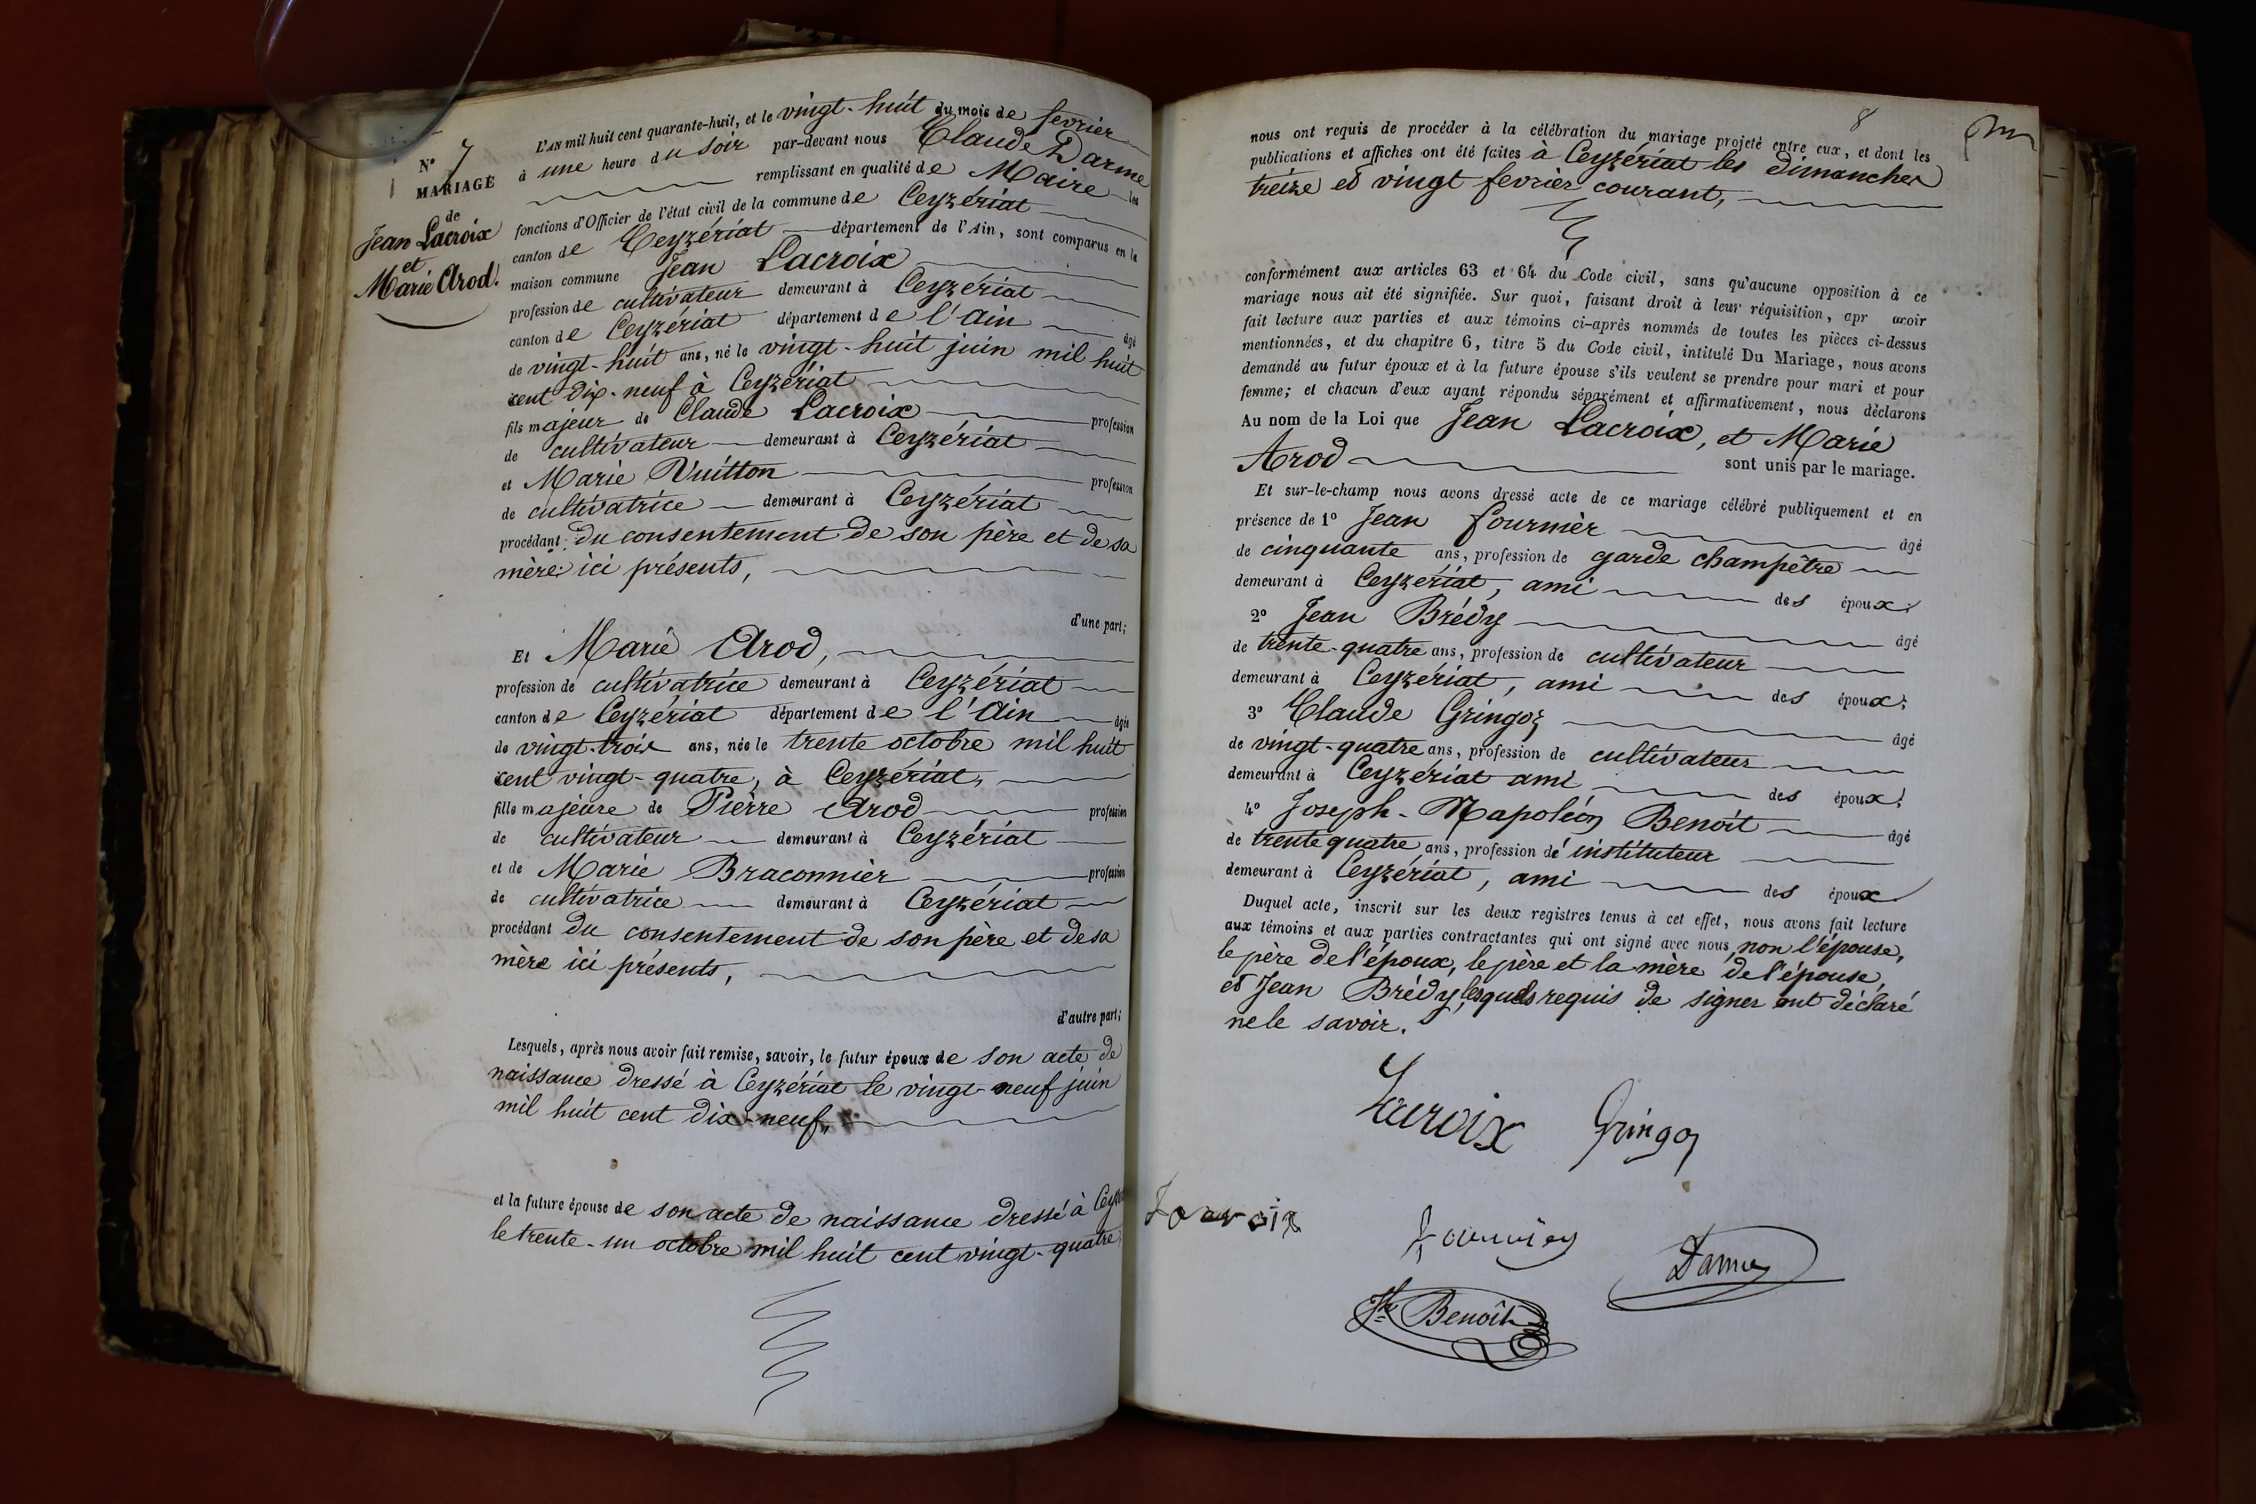 N° 7
MARIAGE
de
Jean Lacroix
et
Marie Arod.
L'AN mil huit cent quarante-huit, et le vingt-huit du mois de fevrier
à une heure du soir par-devant nous Claude Darme
remplissant en qualité de Maire les
fonctions d'Officier de l'état civil de la commune de Ceyzériat
canton de Ceyzériat département de l'Ain, sont comparus en la
maison commune Jean Lacroix
profession de cultivateur demeurant à Ceyzériat
canton de Ceyzériat département de l'Ain âgé
de vingt-huit ans, né le vingt-huit juin mil huit
cent dix-neuf à Ceyzériat
fils majeur de Claude Lacroix profession
de cultivateur demeurant à Ceyzériat
et Marie Vuitton profession
de cultivatrice demeurant à Ceyzériat
procédant du consentement de son père et de sa
mère ici présents,
d'une part;
Et Marie Arod,
profession de cultivatrice demeurant à Ceyzériat
canton de Ceyzériat département de l'Ain âgée
de vingt-trois ans, née le trente octobre mil huit
cent vingt-quatre, à Ceyzériat,
fille majeure de Pierre Arod profession
de cultivateur demeurant à Ceyzériat
et de Marie Braconnier profession
de cultivatrice demeurant à Ceyzériat
procédant du consentement de son père et de sa
mère ici présents,
d'autre part;
Lesquels, après nous avoir fait remise, savoir, le futur époux de son acte de
naissance dressé à Ceyzériat le vingt-neuf juin
mil huit cent dix-neuf,
et la future épouse de son acte de naissance dressé à Ceyz
le trente-un octobre mil huit cent vingt-quatre,
8
nous ont requis de procéder à la célébration du mariage projeté entre eux, et dont les
publications et affiches ont été faites à Ceyzériat les dimanches
treize et vingt fevrier courant,
conformément aux articles 63 et 64 du Code civil, sans qu'aucune opposition à ce
mariage nous ait été signifiée. Sur quoi, faisant droit à leur réquisition, apr avoir
fait lecture aux parties et aux témoins ci-après nommés de toutes les pièces ci-dessus
mentionnées, et du chapitre 6, titre 5 du Code civil, intitulé Du Mariage, nous avons
demandé au futur époux et à la future épouse s'ils veulent se prendre pour mari et pour
femme; et chacun d'eux ayant répondu séparément et affirmativement, nous déclarons
Au nom de la Loi que Jean Lacroix, et Marie
Arod sont unis par le mariage.
Et sur-le-champ nous avons dressé acte de ce mariage célébré publiquement et en
présence de 1° Jean fournier âgé
de cinquante ans, profession de garde champêtre
demeurant à Ceyzériat, ami des époux.
2° Jean Brédy âgé
de trente-quatre ans, profession de cultivateur
demeurant à Ceyzériat, ami des époux;
3° Claude Gringoz âgé
de vingt-quatre ans, profession de cultivateur
demeurant à Ceyzériat ami des époux;
4° Joseph-Napoléon Benoît âgé
de trente quatre ans, profession de instituteur
demeurant à Ceyzériat, ami des époux
Duquel acte, inscrit sur les deux registres tenus à cet effet, nous avons fait lecture
aux témoins et aux parties contractantes qui ont signé avec nous, non l'épouse,
le père de l'époux, le père et la mère de l'épouse,
et Jean Brédy, lesquels requis de signer ont déclaré
ne le savoir.
Lacroix Gringoz
Lacroix fournier
Darme
Jh Benoît